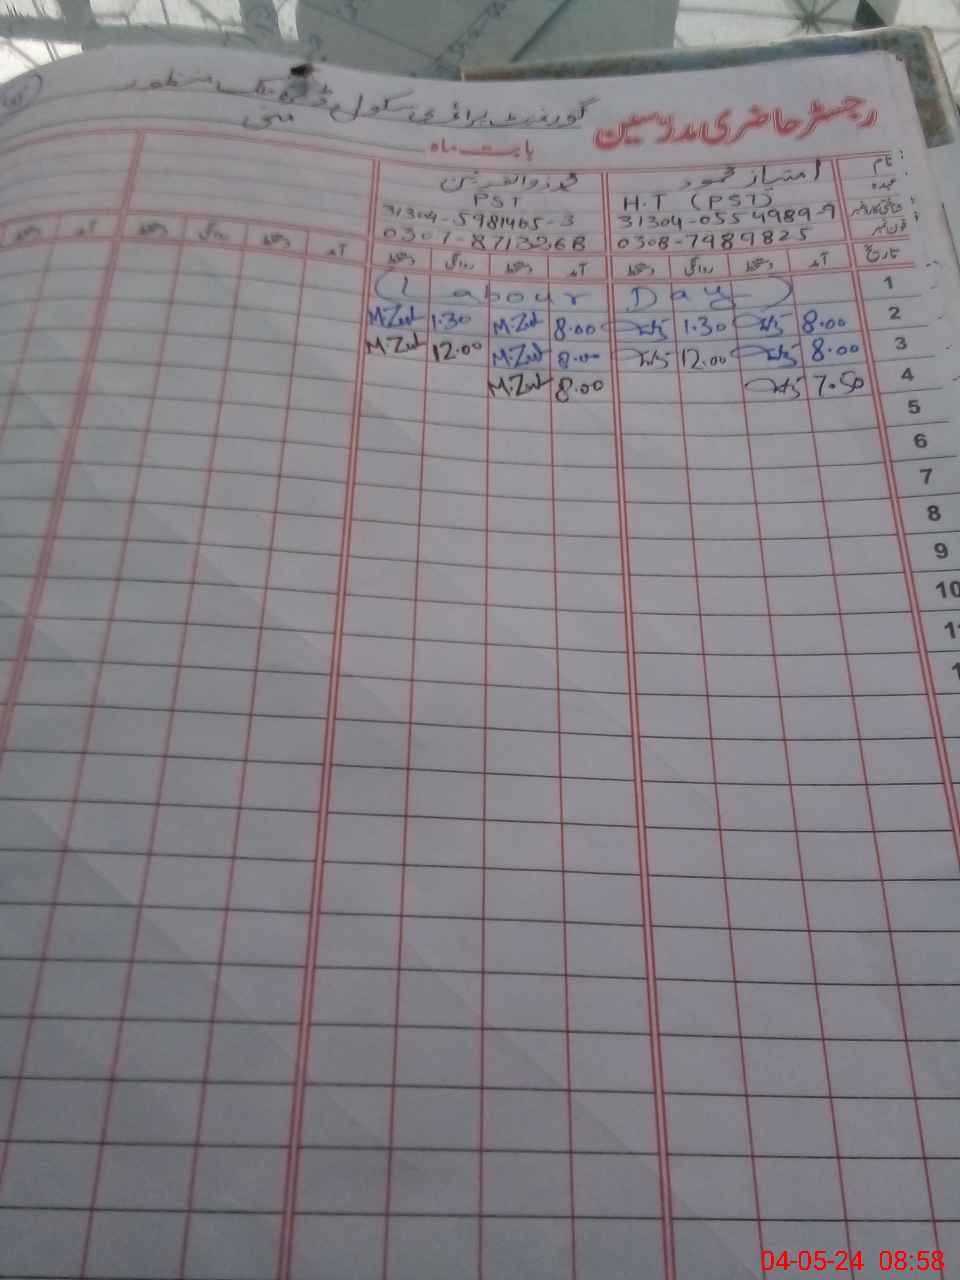 رجسٹر حاضری مدرسین گورنمنٹ پرائمری سکول منظور
بابت ماہ مئی
نام امتیاز محمود محمد ذوالقرنین
عہدہ H.T (PST) PST
31304-0554989-9 31304-5981465-3
فون نمبر 0308-7989825 0307-8713268
تاریخ آمد دستخط روانگی دستخط آمد دستخط روانگی دستخط آمد دستخط روانگی دستخط آمد دستخط
1 (Labour Day)
2 8.00 1.30 8.00 M.Zul 1.30 M.Zul
3 8.00 12.00 8.00 M.Zul 12.00 M.Zul
4 7.50 8.00 M.Zul
5
6
7
8
9
10
04-05-24 08:58